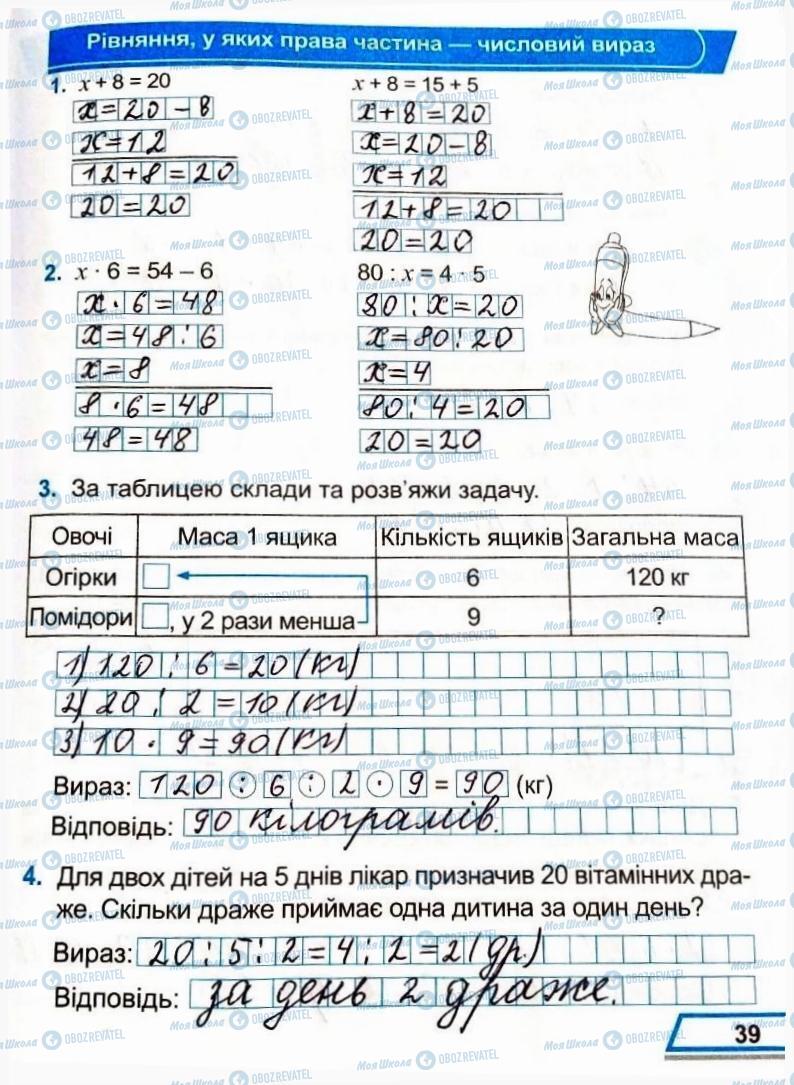 Рівняння, у яких права частина — числовий вираз
1. x + 8 = 20
x = 20 - 8
x = 12
12 + 8 = 20
20 = 20
x + 8 = 15 + 5
x + 8 = 20
x = 20 - 8
x = 12
12 + 8 = 20
20 = 20
2. x · 6 = 54 – 6
x · 6 = 48
x = 48 : 6
x = 8
8 · 6 = 48
48 = 48
80 : x = 4 · 5
80 : x = 20
x = 80 : 20
x = 4
80 : 4 = 20
20 = 20
3. За таблицею склади та розв'яжи задачу.
Овочі Маса 1 ящика Кількість ящиків Загальна маса
Огірки 6 120 кг
Помідори , у 2 рази менша 9 ?
1) 120 : 6 = 20 (кг)
2) 20 : 2 = 10 (кг)
3) 10 · 9 = 90 (кг)
Вираз: 120 : 6 : 2 · 9 = 90 (кг)
Відповідь: 90 кілограмів.
4. Для двох дітей на 5 днів лікар призначив 20 вітамінних дра-
же. Скільки драже приймає одна дитина за один день?
Вираз: 20 : 5 : 2 = 4 : 2 = 2 (др.)
Відповідь: за день 2 драже.
39
МояШкола OBOZREVATEL